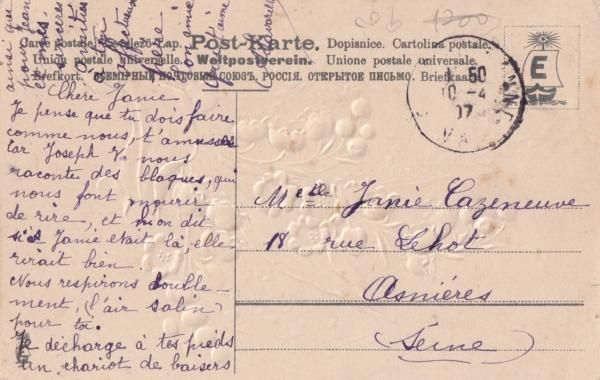 Carte postale. Levelező-Lap. Post-Karte. Dopisnice. Cartolina postale.
Union postale universelle. Weltpostverein. Unione postale universale.
Briefkort. ВСЕМІРНЫЙ ПОЧТОВЫЙ СОЮЗЪ. РОССІЯ. ОТКРЫТОЕ ПИСЬМО. Briefkaart.
1200
E
10-4
07
Chère Janie
Je pense que tu dois faire
comme nous, t'amuser
car Joseph V. nous
raconte des blagues, qui
nous font mourir
de rire, et l'on dit
si Janie était là, elle
rirait bien.
Nous respirons double-
ment, (l'air salin)
pour toi.
Je décharge à tes pieds
un chariot de baisers
ainsi que
pour Jean
sincères
Ton amie
qui t'aime
Melle Janie Cazeneuve
18 rue Lehot
Asnières
Seine